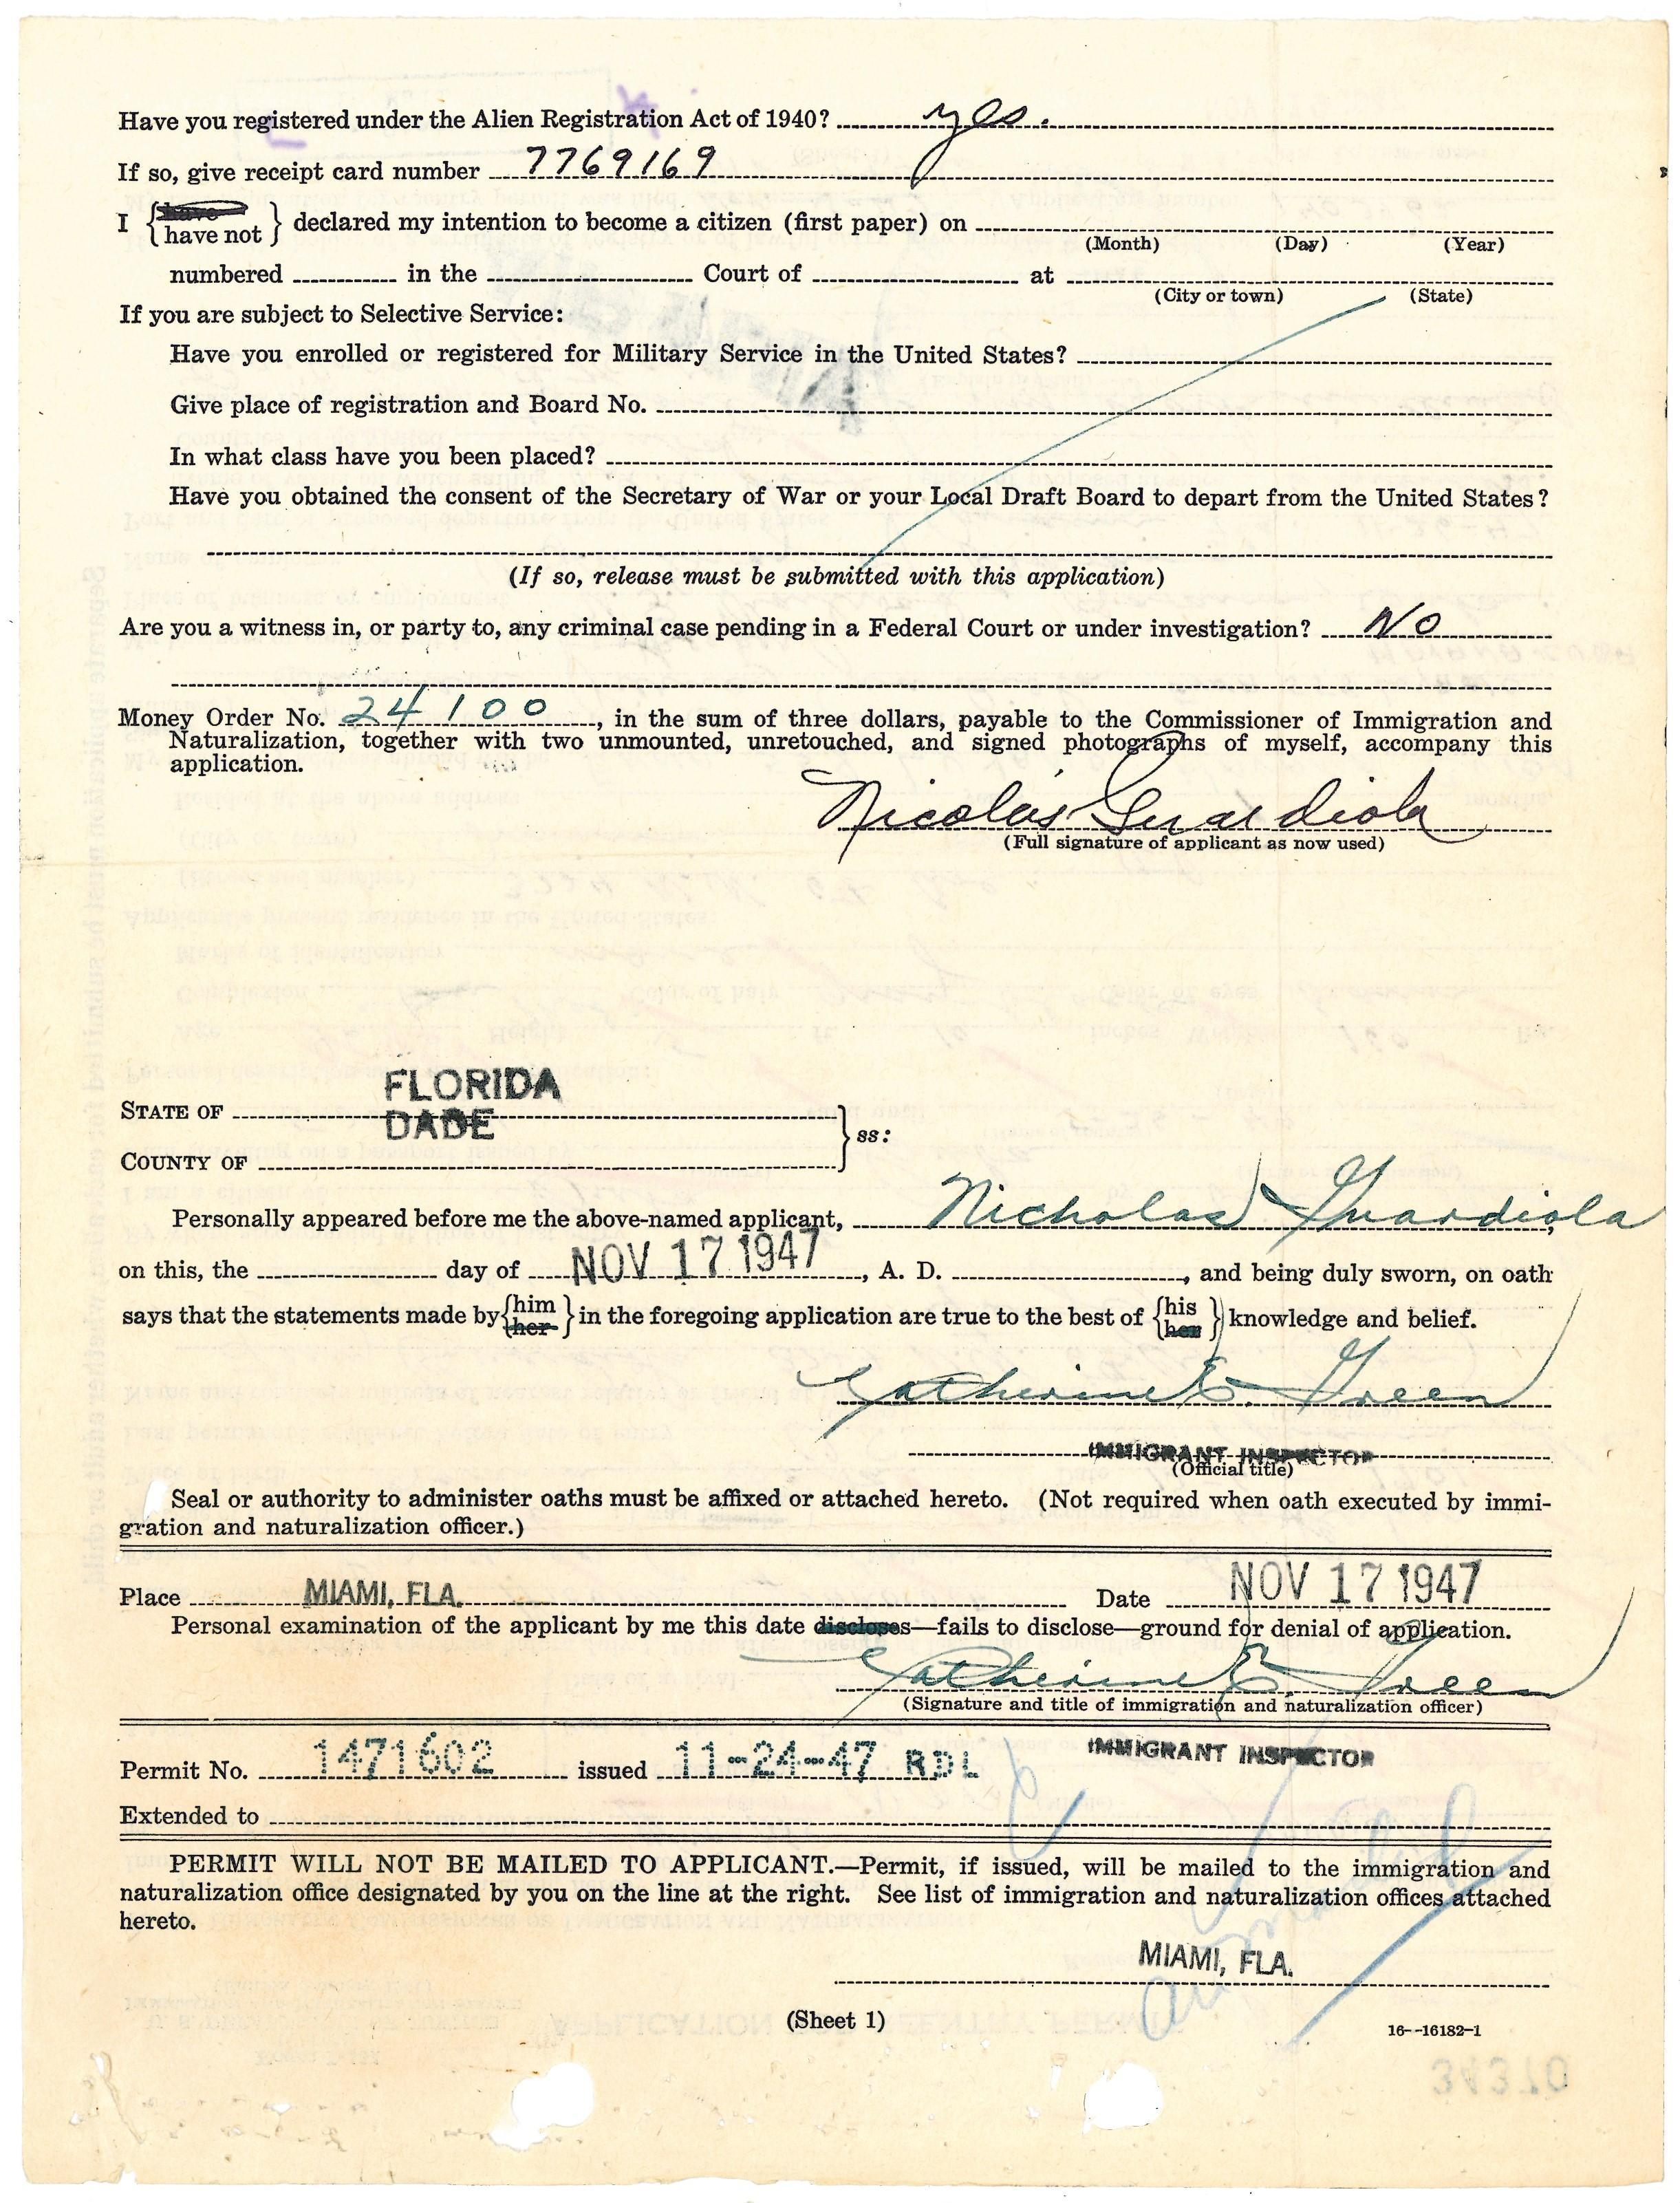 Have you registered under the Alien Registration Act of 1940? yes.
If so, give receipt card number 7769169
I {have
have not} declared my intention to become a citizen (first paper) on
(Month) (Day) (Year)
numbered in the Court of at
(City or town) (State)
If you are subject to Selective Service:
Have you enrolled or registered for Military Service in the United States?
Give place of registration and Board No.
In what class have you been placed?
Have you obtained the consent of the Secretary of War or your Local Draft Board to depart from the United States?
(If so, release must be submitted with this application)
Are you a witness in, or party to, any criminal case pending in a Federal Court or under investigation? No
Money Order No. 24100, in the sum of three dollars, payable to the Commissioner of Immigration and
Naturalization, together with two unmounted, unretouched, and signed photographs of myself, accompany this
application.
Nicolás Guardiola
(Full signature of applicant as now used)
FLORIDA
STATE OF
DADE
ss:
COUNTY OF
Personally appeared before me the above-named applicant, Nicholas Guardiola,
on this, the day of NOV 17 1947, A. D. , and being duly sworn, on oath
says that the statements made by {him
her} in the foregoing application are true to the best of {his
her} knowledge and belief.
Catherine E. Green
IMMIGRANT INSPECTOR
(Official title)
Seal or authority to administer oaths must be affixed or attached hereto. (Not required when oath executed by immi-
gration and naturalization officer.)
Place MIAMI, FLA. Date NOV 17 1947
Personal examination of the applicant by me this date discloses—fails to disclose—ground for denial of application.
Catherine E. Green
(Signature and title of immigration and naturalization officer)
IMMIGRANT INSPECTOR
Permit No. 1471602 issued 11-24-47 RDL
Extended to
PERMIT WILL NOT BE MAILED TO APPLICANT.—Permit, if issued, will be mailed to the immigration and
naturalization office designated by you on the line at the right. See list of immigration and naturalization offices attached
hereto.
MIAMI, FLA.
(Sheet 1)
16--16182-1